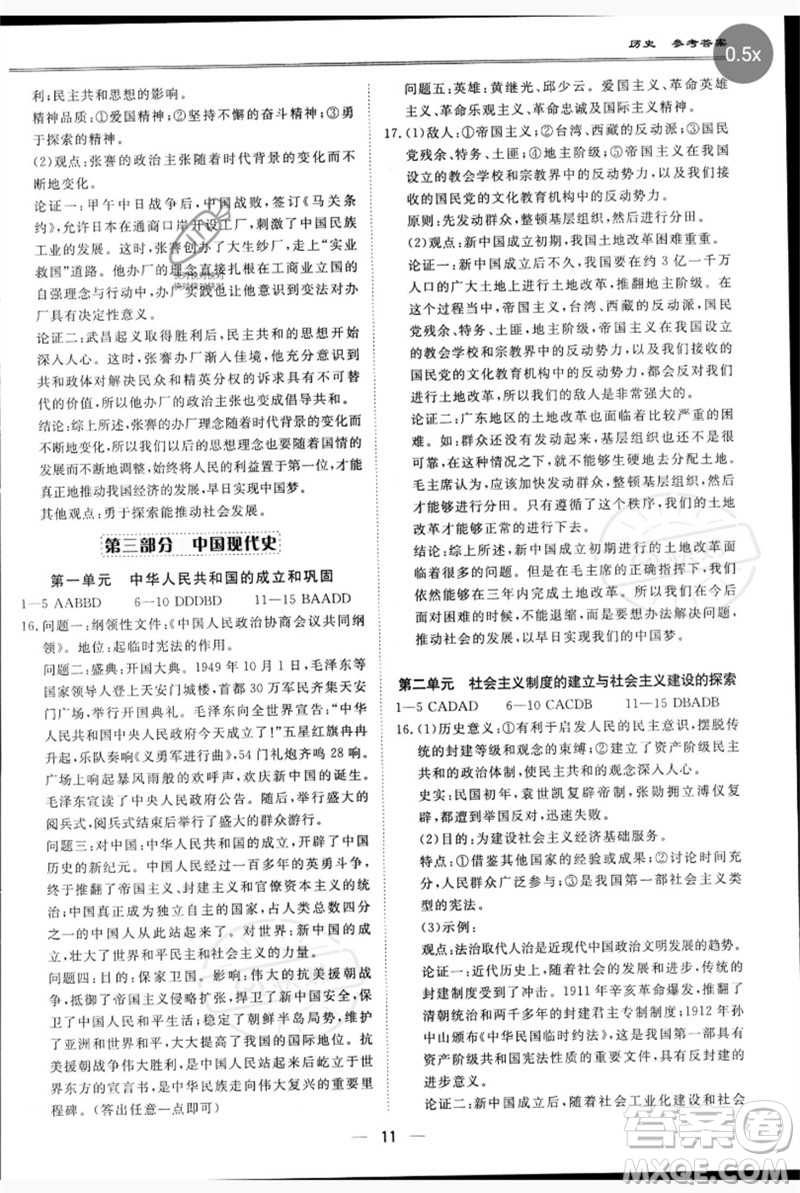 历史 参考答案
0.5x
利:民主共和思想的影响。
精神品质:①爱国精神;②坚持不懈的奋斗精神;③勇
于探索的精神。
(2)观点:张謇的政治主张随着时代背景的变化而不
断地变化。
论证一:甲午中日战争后,中国战败,签订《马关条
约》,允许日本在通商口岸开设工厂,刺激了中国民族
工业的发展。这时,张謇创办了大生纱厂,走上“实业
救国”道路。他办厂的理念直接扎根在工商业立国的
自强理念与行动中,办厂实践也让他意识到变法对办厂
具有决定性意义。
论证二:武昌首义取得胜利后,民主共和的思想开始
深入人心。这时,张謇办厂渐入佳境,他充分意识到
共和政体对解决民众和精英分权的机制具有不可替
代的价值,所以他办厂的政治主张变成倡导共和。
结论:综上所述,张謇办厂理念随着时代背景的变化而
不断地变化,所以我们的思想理念也要根据国情的
发展而不断地调整,始终将人民的利益置于第一位,才能
真正地推动我国经济的发展,早日实现中国梦。
其他观点:勇于探索能推动社会发展。
第三部分 中国现代史
第一单元 中华人民共和国的成立和巩固
1—5 AABBD 6—10 DDDBD 11—15 BAADD
16.问题一:纲领性文件:《中国人民政治协商会议共同纲
领》。地位:起临时宪法的作用。
问题二:盛典:开国大典。1949 年 10 月 1 日,毛泽东等
国家领导人登上天安门城楼,首都 30 万军民齐集天安
门广场,举行隆重的开国大典。毛泽东宣告:“中华人
民共和国中央人民政府今天成立了!”五星红旗冉冉升
起,乐队奏响《义勇军进行曲》,54 门礼炮齐鸣 28 响。
广场上响起暴风雨般的欢呼声,欢庆新中国的诞生。
毛泽东宣读了中央人民政府公告。接着,举行了盛大的
阅兵式,阅兵式后举行了盛大的群众游行。
问题三:对中国:中华人民共和国的成立,开辟了中国
历史的新纪元。中国经过一百多年的英勇斗争,
终于推翻了帝国主义、封建主义和官僚资本主义的统
治,中国成为独立自主的国家,占人类总数四分之一
的中国人从此站起来了。对世界:新中国的成立,
壮大了世界和平民主和社会主义的力量。
问题四:目的:保家卫国。影响:伟大的抗美援朝战
争,抵御了帝国主义侵略扩张,捍卫了新中国安全,保卫
了中国人民和平生活,稳定了朝鲜半岛局势,维护了
亚洲和世界和平,大大提高了我国的国际地位。抗
美援朝战争伟大胜利,是中国人民站起来后屹立于世
界东方的宣言书,是中华民族走向伟大复兴的重要里
程碑。(答出任意一点即可)
问题五:英雄:黄继光、邱少云。爱国主义、革命英雄
主义、革命乐观主义、革命忠诚及国际主义精神。
17.(1)敌人:①帝国主义;②台湾、西藏的反动派;③国民
党残余、特务、土匪;④地主阶级;⑤帝国主义在我国
设立的教会学校和宗教界中的反动势力;⑥我们接收
的国民党的文化教育机构中的反动势力。
原则:先发动群众,整顿基层组织,然后进行分田。
(2)观点:新中国成立初期,我国土地改革困难重重。
论证一:新中国成立后不久,我国要在约 3 亿一千万
人口的广大土地上进行土地改革,推翻地主阶级。在
这个过程当中,帝国主义,台湾、西藏的反动派,国民
党残余、特务、土匪,地主阶级,帝国主义在我国设立
的教会学校和宗教界中的反动势力,以及我们接收的
国民党的文化教育机构中的反动势力,都会反对我们
进行土地改革,所以敌人是非常多的。
论证二:广东地区的土地改革面临着比较严重的困
难。如:群众还没有发动起来,基层组织也不完全
可靠,在这种情况下,土地改革是无法顺利开展的。
毛主席认为,必须先发动群众,整顿基层组织,然后才
能够进行分田。只有遵守了这个秩序,我们的土地改
革才能够成功。
结论:综上所述,新中国成立初期的土地改革面临着
很多的问题。但是在党和人民的努力下,我国依然能
在三年的时间内完成土地改革。所以我们在困难面
前,一定不能退缩,而是要想办法解决问题,努力奋斗,
推动社会的发展,以早日实现我们的中国梦。
第二单元 社会主义制度的建立与社会主义建设的探索
1—5 CADAD 6—10 CACDB 11—15 DBADB
16.(1)历史意义:①有利于启发人民的民主意识,摆脱传
统的封建等级和观念的束缚;②建立了资产阶级民主
共和的政治体制,使民主共和的观念深入人心。
史实:民国初年,袁世凯复辟帝制、张勋拥立溥仪复
辟,都遭到人民的反对,迅速失败。
(2)目的:为建设社会主义经济基础服务。
特点:①借鉴其他国家的经验或成果;②讨论时间充
分,人民群众广泛参与;③是我国第一部社会主义类
型的宪法。
(3)示例:
观点:法治取代人治是近现代中国政治文明发展的趋势。
论证一:近代历史上,随着社会的发展,中国传统的
封建制度受到了冲击。1911 年辛亥革命爆发,推翻了
清朝统治和两千多年的封建君主专制制度;1912 年孙
中山颁布《中华民国临时约法》,这是我国第一部具有
资产阶级共和国宪法性质的重要文件。
论证二:新中国成立后,随着社会工业化建设和社会
11